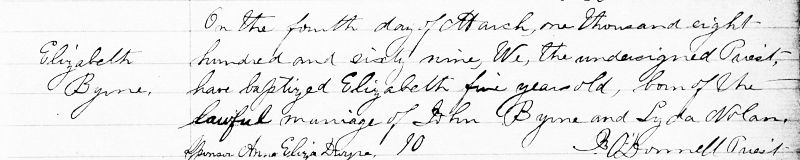 On the fourth day of March, one thousand eight
Elizabeth
hundred and sixty nine, We, the undersigned Priest,
Byrne,
have baptized Elizabeth five years old, born of the
lawful marriage of John Byrne and Lyda Nolan.
Sponsor Anne Eliza 10 P. O'Donnell Priest